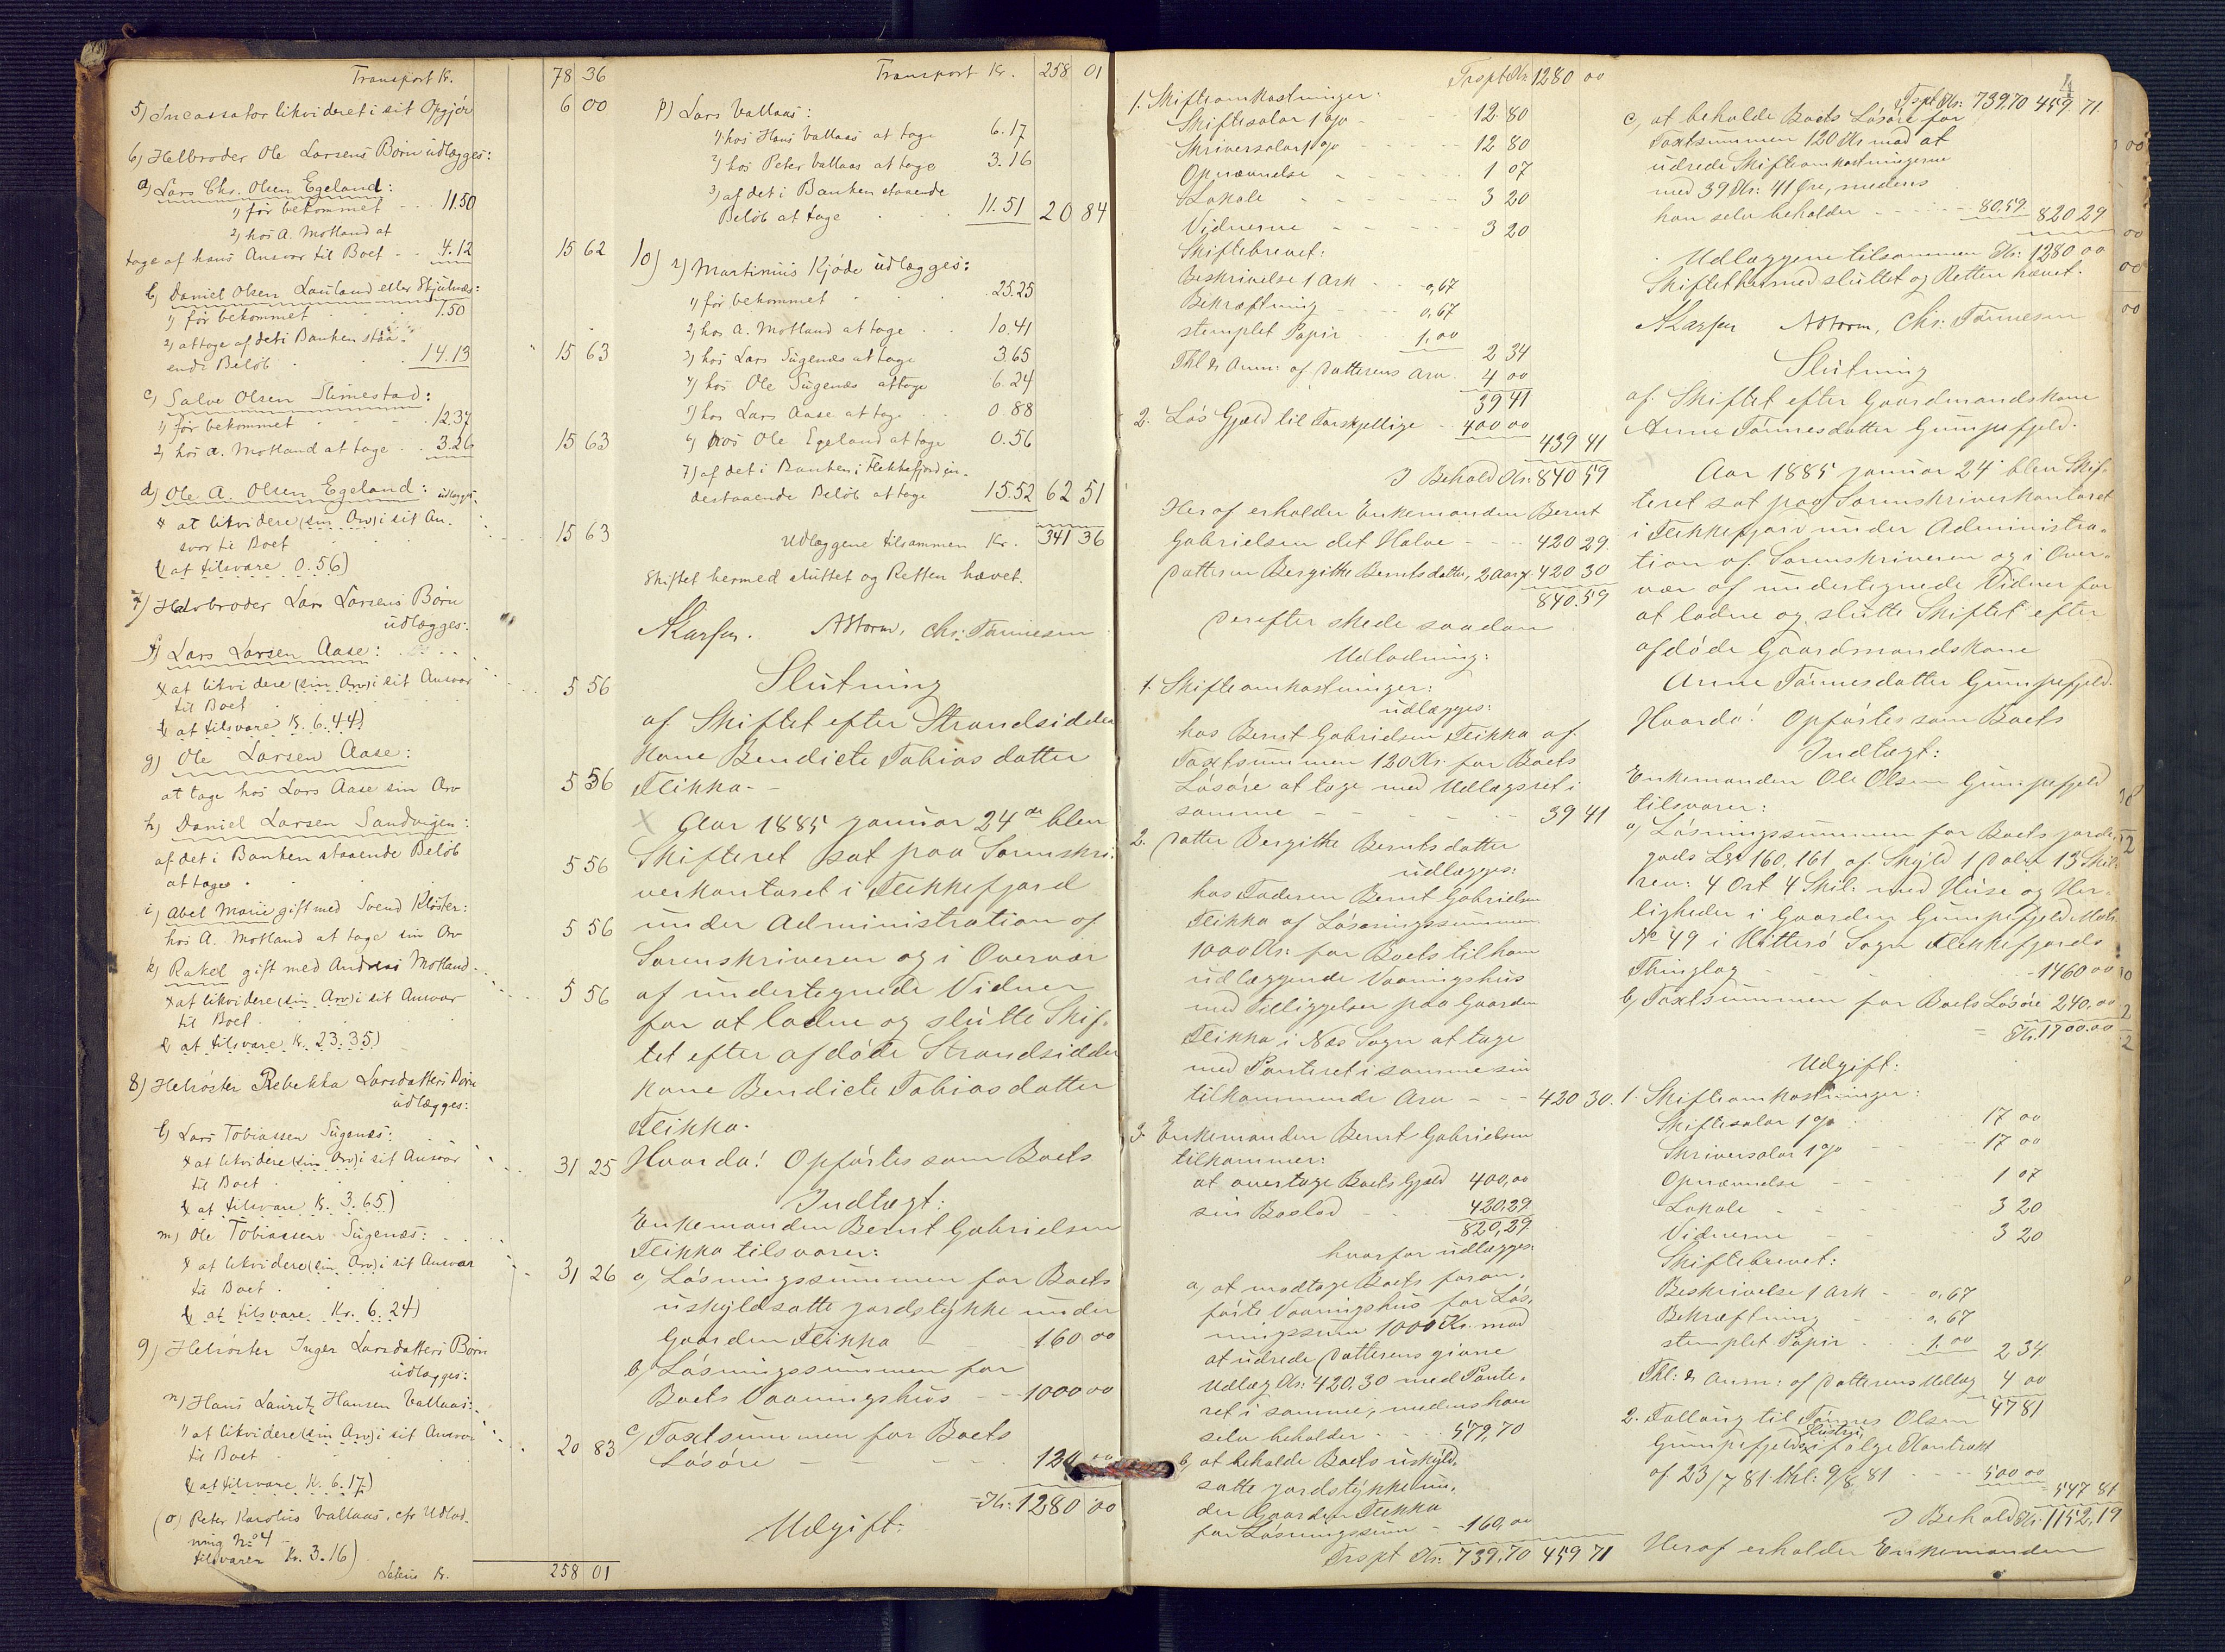 Transport Kr. 78 36
5) Incassator likvideret i sit Opgjör 6 00
6) Helbroder Ole Larsens Börn udlægges:
a) Lars Chr. Olsen Egeland:
1) för bekommet 11.50
2) hos A. Motland at
tage af hans Ansvar til Boet 4.12 15 62
b) Daniel Olsen Lauland eller Skjulnæs:
1) för bekommet 1.50
2) at tage af det i Banken staa-
ende Belöb 14.13 15 63
c) Salve Olsen Slimestad:
1) för bekommet 12.37
2) hos A. Motland at tage 3.26 15 63
d) Ole A. Olsen Egeland: udlægges
at likvidere (sin Arv) i sit An-
svar til Boet 15 63
(at tilsvare 0.56)
7) Halvbroder Lars Larsens Börn
udlægges:
f) Lars Larsen Aase:
at likvidere (sin Arv) i sit Ansvar
til Boet 5 56
(at tilsvare Kr. 6.44)
g) Ole Larsen Aase:
at tage hos Lars Aase sin Arv 5 56
h) Daniel Larsen Sandvigen:
af det i Banken staaende Belöb
at tage 5 56
i) Abel Marie gift med Svend Klöster:
hos A. Motland at tage sin Arv 5 56
k) Rakel gift med Andreas Motland
at likvidere (sin Arv) i sit Ansvar
til Boet 5 56
(at tilsvare Kr. 23.35)
8) Helsöster Rebekka Larsdatters Börn
udlægges:
l) Lars Tobiassen Sügenæs:
at likvidere (sin Arv) i sit Ansvar
til Boet 31 25
(at tilsvare Kr. 3.65)
m) Ole Tobiassen Sügenæs:
at likvidere (sin Arv) i sit Ansvar
til Boet 31 26
(at tilsvare Kr. 6.24)
9) Helsöster Inger Larsdatters Börn
udlægges:
n) Hans Lauritz Hansen Vallaas:
1) at likvidere (sin Arv) i sit Ansvar
til Boet 20 83
(at tilsvare Kr. 6.17)
(o) Peter Karolius Vallaas, cfr Udlod-
ning No 4
tilsvarer Kr. 3.16)
Latus Kr. 258 01
Transport Kr. 258 01
p) Lars Vallaas:
1) hos Hans Vallaas at tage 6.17
2) hos Peter Vallaas at tage 3.16
3) af det i Banken staaende
Belöb at tage 11.51 20 84
10) r) Martinius Kjöde udlægges:
1) för bekommet 25.25
2) hos A. Motland at tage 10.41
3) hos Lars Sügenæs at tage 3.65
4) hos Ole Sügenæs at tage 6.24
5) hos Lars Aase at tage 0.88
6) hos Ole Egeland at tage 0.56
7) af det i Banken i Flekkefjord in-
destaaende Belöb at tage 15.52 62 51
Udlæggene tilsammen Kr. 341 36
Skiftet hermed sluttet og Retten hævet.
AStorm, Chr: Tönnesen
Slutning
af Skiftet efter Strandsidder
Kone Bendicte Tobiasdatter
Flikka.
Aar 1885 januar 24de blev
Skifteret sat paa Sorenskri-
verkontoret i Flekkefjord
under Administration af
Sorenskriveren og i Overvær
af undertegnede Vidner
for at lodne og slutte Skif-
tet efter afdöde Strandsidder
Kone Bendicte Tobiasdatter
Flikka.
Hvorda! Opförtes som Boets
Indtægt:
Enkemanden Bernt Gabrielsen
Flikka tilsvarer:
a) Lösningssummen for Boets
uskyldsatte jordstykke under
Gaarden Flikka 160 00
b) Lösningssummen for
Boets Vaaningshus 1000 00
c) Taxtsummen for Boets
Lösöre 120 00
Kr: 1280 00
Udgift:
Trspt Kr: 1280 00
1. Skifteomkostninger:
Skiftesalar 1 % 12 80
Skriversalar 1 % 12 80
Opnævnelse 1 07
Lokale 3 20
Vidnerne 3 20
Skiftebrevet:
Beskrivelse 1 Ark 0,67
Bekræftning 0,67
stemplet Papir 1,00 2 34
Thl & Anm: af Datterens Arv 4 00
39 41
2. Lös Gjæld til Forskjellige 400 00
439 41
I Behold Kr: 840 59
Heraf erholder Enkemanden Bernt
Gabrielsen det Halve 420 29
Datteren Bergithe Berntsdatter, 2 Aar 420 30
840.59
Derefter skede saadan
Udlodning:
1. Skifteomkostninger:
udlægges:
hos Bernt Gabrielsen Flikka af
Taxtsummen 120 Kr. for Boets
Lösöre at tage med Udlægsret i
samme 39 41
2. Datter Bergithe Berntsdatter
udlægges:
hos Faderen Bernt Gabrielsen
Flikka af Lösningssummen
1000 Kr: for Boets til ham
udlæggende Vaaningshus
med Tilliggelser paa Gaarden
Flikka i Næs Sogn at tage
med Panteret i samme sin
tilkommende Arv 420 30.
3. Enkemanden Bernt Gabrielsen
tilkommer:
at overtage Boets Gjæld 400,00
sin Boslod 420.29
820,29
hvorfor udlægges:
a) at modtage Boets foran-
förte Vaaningshus for Lös-
ningssum 1000 Kr. mod
at udrede Datterens givne
Udlæg Kr: 420.30 med Pante-
ret i samme, medens han
selv beholder 579,70
b) at beholde Boets uskyld-
satte jordstykke un-
der Gaarden Flikka
for Lösningssum 160,00
Trspt Kr: 739,70 459 71
4
Trspt Kr: 739,70 459 71.
c) at beholde Boets Lösöre for
Taxtsummen 120 Kr mod at
udrede Skifteomkostningerne
med 39 Kr: 41 Öre, medens
han selv beholder 80,59 820 29
Udlæggene tilsammen Kr: 1280 00
Skiftet hermed sluttet og Retten hævet.
AStorm, Chr: Tönnesen
Slutning
af Skiftet efter Gaardmandskone
Anne Tönnesdatter Gumpefjeld.
Aar 1885 januar 24 blev Skif-
teret sat paa Sorenskriverkontoret
i Flekkefjord under Administra-
tion af Sorenskriveren og i Over-
vær af undertegnede Vidner for
at lodne og slutte Skiftet efter
afdöde Gaardmandskone
Anne Tönnesdatter Gumpefjeld.
Hvorda! Opförtes som Boets
Indtægt:
Enkemanden Ole Olsen Gumpefjeld
tilsvarer:
a) Lösningssummen for Boets jorde-
gods Lnr 160, 161 af Skyld 1 Daler 13 Skil:
rev: 4 Ort 4 Skil: med Huse og Her-
ligheder i Gaarden Gumpefjeld Matr.
No 49 i Hitterö Sogn Flekkefjords
Thinglag 1460 00
b) Taxtsummen for Boets Lösöre 240,00
Kr. 1700.00
Udgift:
1. Skifteomkostninger:
Skiftesalar 1 % 17 00
Skriversalar 1 % 17 00
Opnævnelse 1 07
Lokale 3 20
Vidnerne 3 20
Skiftebrevet:
Beskrivelse 1 Ark 0,67
Bekræftning 0,67
stemplet Papir 1.00 2 34
Thl: & Anm: af Datterens Udlæg 4 00
47 81
2. Follaug til Tönnes Olsen
Gumpefjelds Hustru ifölge Kontrakt
af 23/7 81 thl: 9/8 81 500 00
547 81
I Behold Kr: 1152,19
Heraf erholder Enkemanden